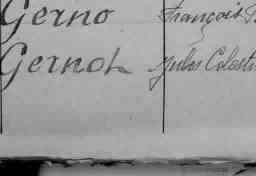 Gerno François
Gernoh Jules Celesti